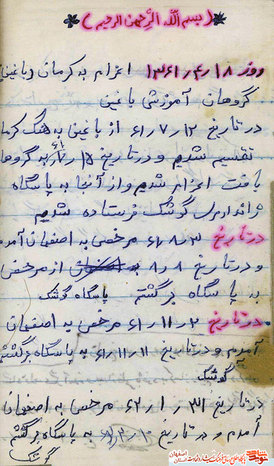 (بسم الله الرحمن الرحیم)
روز ۱۸/۴/۱۳۶۱ اعزام به کرمان (باغین)
گروهان آموزشی باغین
در تاریخ ۱۲/۷/۶۱ از باغین به هنگ کرما
تقسیم شدیم و در تاریخ ۱۵/۷/۶۱ به گروها
بافت اعزام شدیم و از آنجا به پاسگاه
ژاندارمری گوشک فرستاده شدیم
در تاریخ ۳/۸/۶۱ مرخصی به اصفهان آمد
و در تاریخ ۸/۸ از مرخصی
به پاسگاه برگشتم پاسگاه گوشک
در تاریخ ۲/۱۱/۶۱ مرخصی به اصفهان
آمدم و در تاریخ ۱۱/۱۱/۶۱ به پاسگاه برگشتم
گوشک
در تاریخ ۳۱/۱/۶۲ مرخصی به اصفهان
آمدم و در تاریخ به پاسگاه برگشتم
گوشک